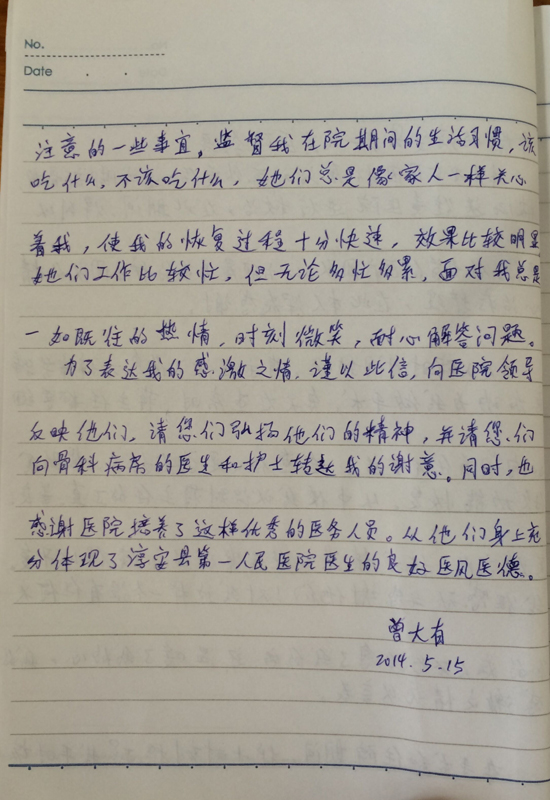 No.
Date . .
注意的一些事宜，监督我在院期间的生活习惯，该
吃什么，不该吃什么，她们总是像家人一样关心
着我，使我的恢复过程十分快速，效果比较明显
她们工作比较忙，但无论多忙多累，面对我总是
一如既往的热情，时刻微笑，耐心解答问题。
为了表达我的感激之情，谨以此信，向医院领导
反映他们，请您们弘扬他们的精神，并请您们
向骨科病房的医生和护士转达我的谢意。同时，也
感谢医院培养了这样优秀的医务人员。从他们身上充
分体现了淳安县第一人民医院医生的良好医风医德。
曾大有
2014.5.15